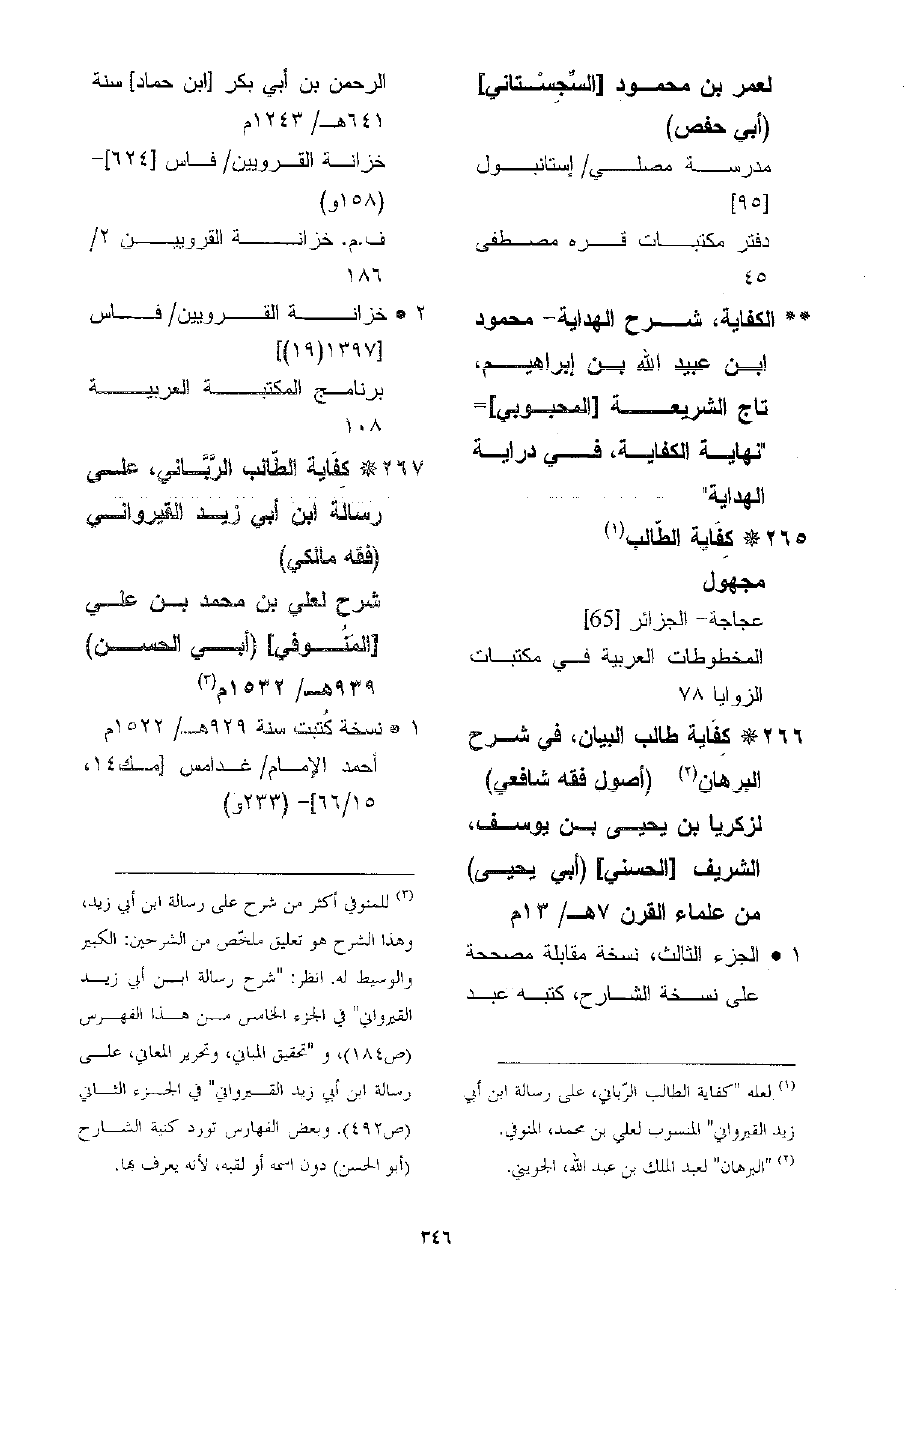 لعمر بن محمود [السِّجسْتاني]
(أبي حفص)
مدرسة مصلى/ إستانبول
[٩٥]
دفتر مكتبات قره مصطفى
٤٥
** الكفاية، شرح الهداية- محمود
ابن عبيد الله بن إبراهيم،
تاج الشريعة [المحبوبي]=
"نهاية الكفاية، في دراية
الهداية"
٢٦٥ * كفَاية الطَّالب(١)
مجهول
عجاجة- الجزائر [65]
المخطوطات العربية في مكتبات
الزوايا ٧٨
٢٦٦ * كفَاية طالب البيان، في شرح
البرهان(٢) (أصول فقه شافعي)
لزكريا بن يحيى بن يوسف،
الشريف [الحسني] (أبي يحيى)
من علماء القرن ٧هـ/ ١٣م
١ • الجزء الثالث، نسخة مقابلة مصححة
على نسخة الشارح، كتبه عبد
(١) لعله "كفاية الطالب الرّباني، على رسالة ابن أبي
زيد القيرواني" المنسوب لعلي بن محمد، المنوفي.
(٢) "البرهان" لعبد الملك بن عبد الله، الجويني.
الرحمن بن أبي بكر [ابن حماد] سنة
٦٤١هـ/ ١٢٤٣م
خزانة القرويين/ فاس [٦٢٤]-
(١٥٨و)
ف.م. خزانة القرويين ٢/
١٨٦
٢ • خزانة القرويين/ فاس
[١٣٩٧(١٩)]
برنامج المكتبة العربية
١٠٨
٢٦٧ * كفَاية الطَّالب الربَّاني، على
رسالة ابن أبي زيد القيرواني
(فقه مالكي)
شرح لعلي بن محمد بن علي
[المَنُوفي] (أبي الحسن)
٩٣٩هـ/ ١٥٣٢م(٣)
١ • نسخة كُتبت سنة ٩٢٩هـ/ ١٥٢٢م
أحمد الإمام/ غدامس [مك١٤،
٦٦/١٥]- (٢٣٣و)
(٣) للمنوفي أكثر من شرح على رسالة ابن أبي زيد،
وهذا الشرح هو تعليق ملخّص من الشرحين: الكبير
والوسيط له. انظر: "شرح رسالة ابن أبي زيد
القيرواني" في الجزء الخامس من هذا الفهرس
(ص١٨٤)، و "تحقيق المباني، وتحرير المعاني، على
رسالة ابن أبي زيد القيرواني" في الجزء الثاني
(ص٤٩٢). وبعض الفهارس تورد كنية الشارح
(أبو الحسن) دون اسمه أو لقبه، لأنه يعرف بها.
٣٤٦